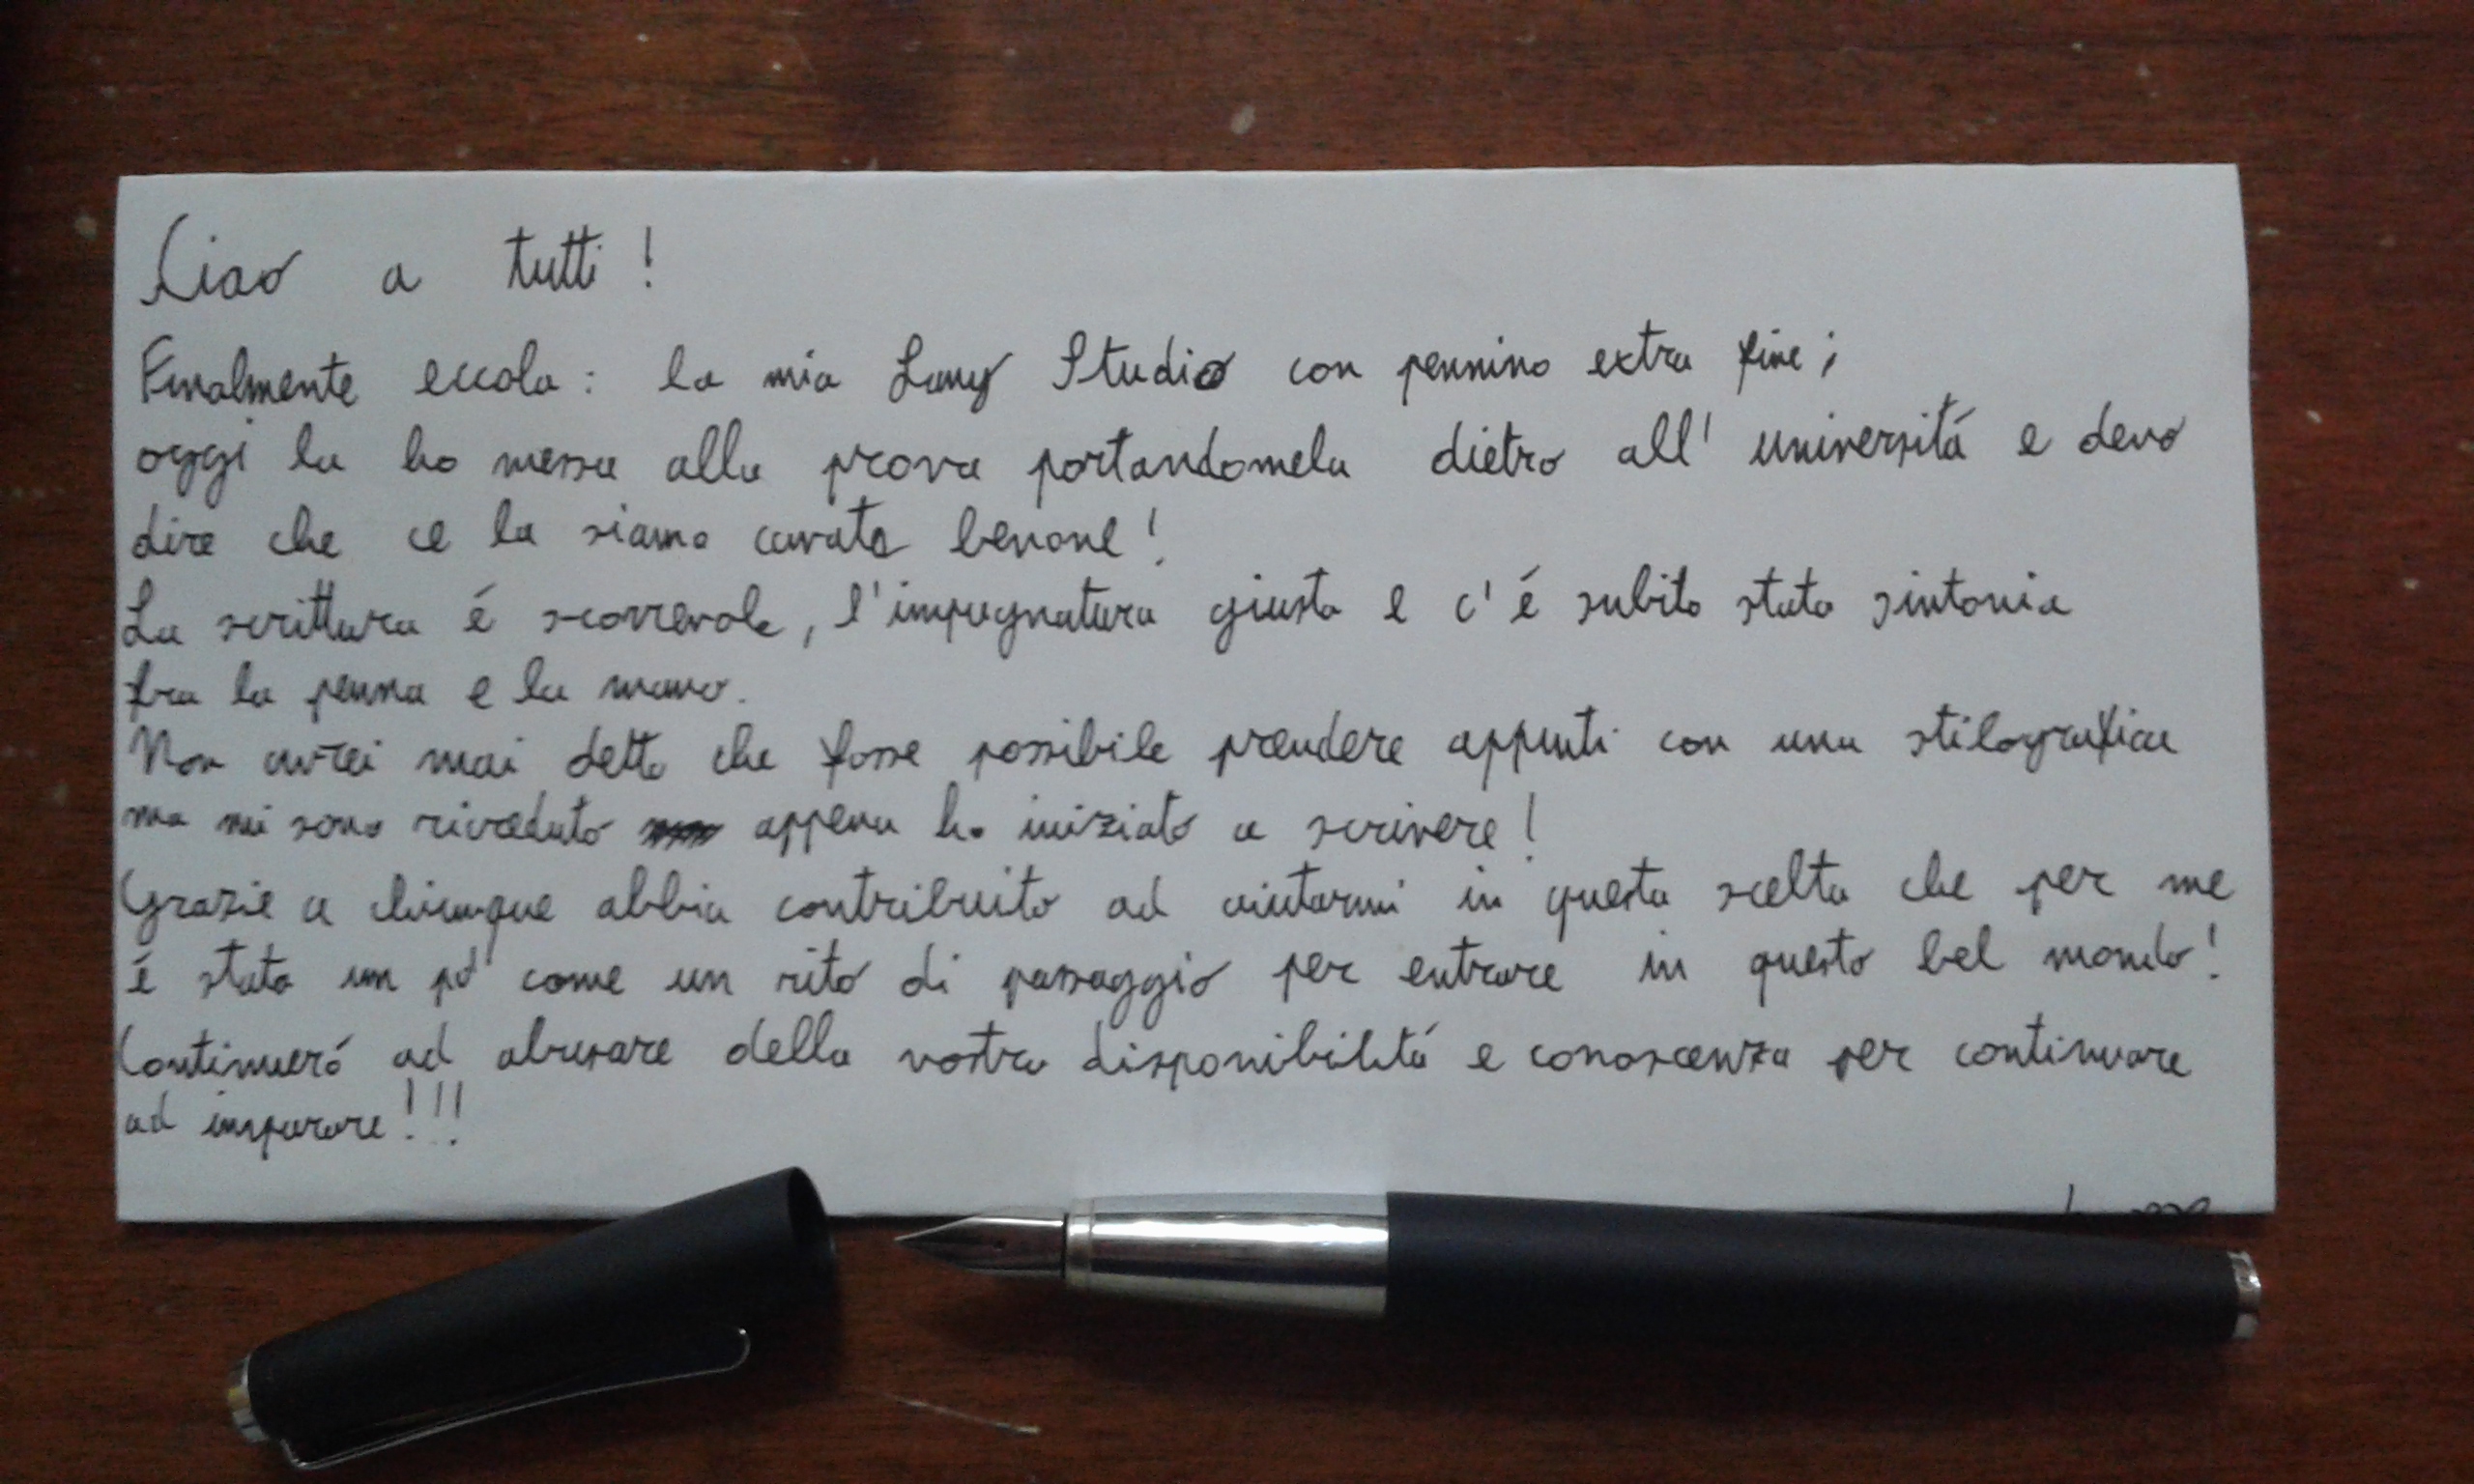 Ciao a tutti!
Finalmente eccola: la mia Lamy Studio con pennino extra fine;
oggi la ho messa alla prova portandomela dietro all'universitá e devo
dire che ce la siamo cavata benone!
La scrittura é scorrevole, l'impugnatura giusta e c'é subito stata sintonia
fra la penna e la mano.
Non avrei mai detto che fosse possibile prendere appunti con una stilografica
ma mi sono ricreduto appena ho iniziato a scrivere!
Grazie a chiunque abbia contribuito ad aiutarmi in questa scelta che per me
é stata un pó come un rito di passaggio per entrare in questo bel mondo!
Continueró ad abusare della vostra disponibilitá e conoscenza per continuare
ad imparare!!!